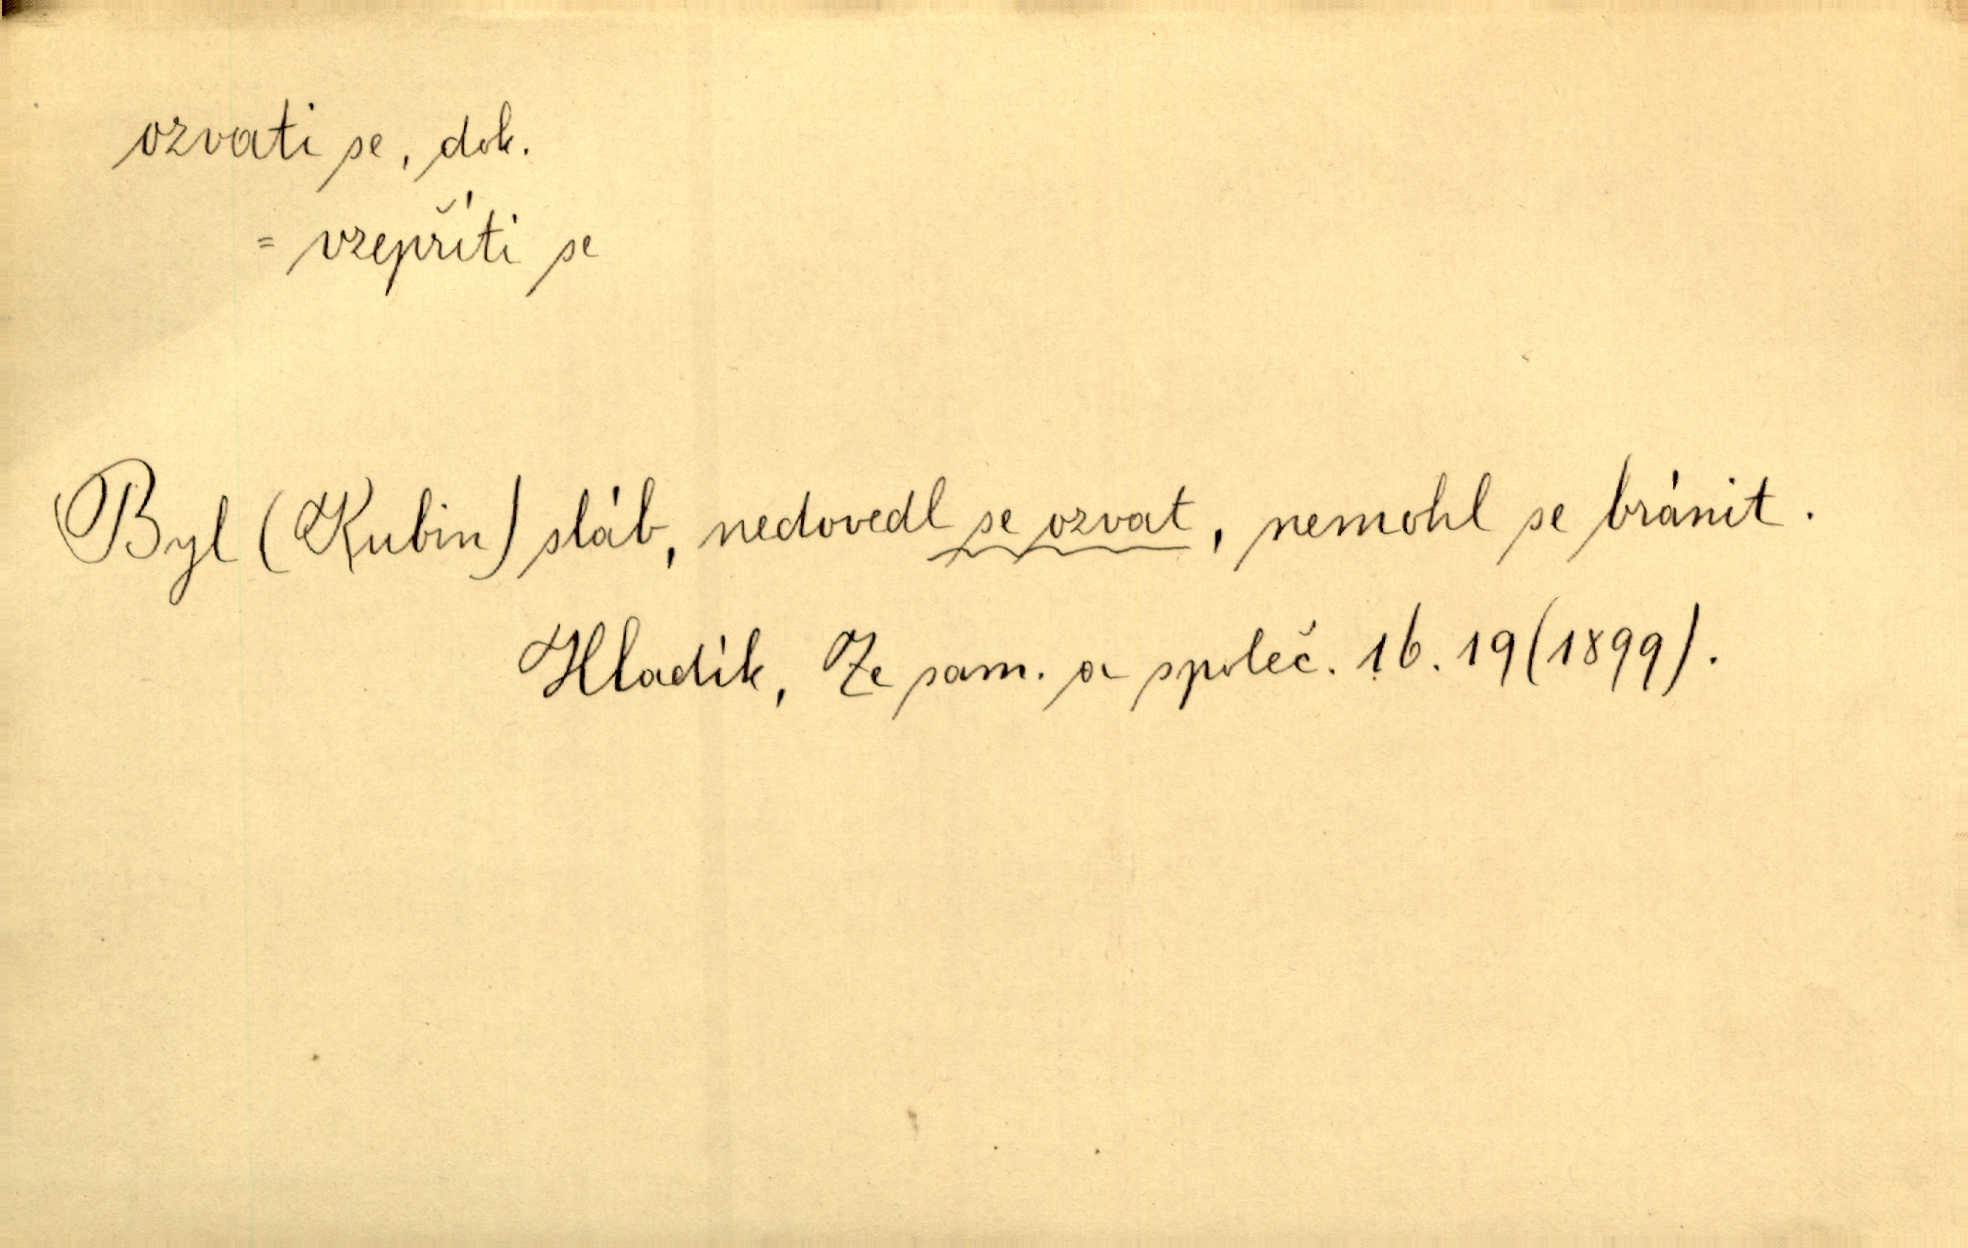 ozvati se, dok.
= vzepříti se
Byl (Kubin) sláb, nedovedl se ozvat, nemohl se bránit.
Hladík, Ze sam. a společ. 16. 19 (1899).